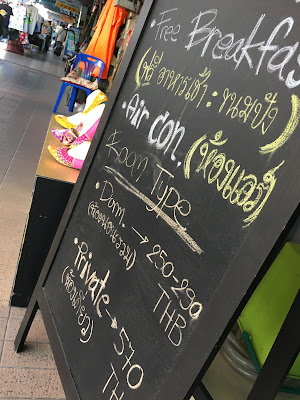 • Free Breakfas
(ฟรี อาหารเช้า : ขนมปัง)
• Air con. (ห้องแอร์)
Room Type
• Dorm. → 250-290
(ห้องนอนรวม) THB
• Private → 570
(ห้องเดี่ยว) TH